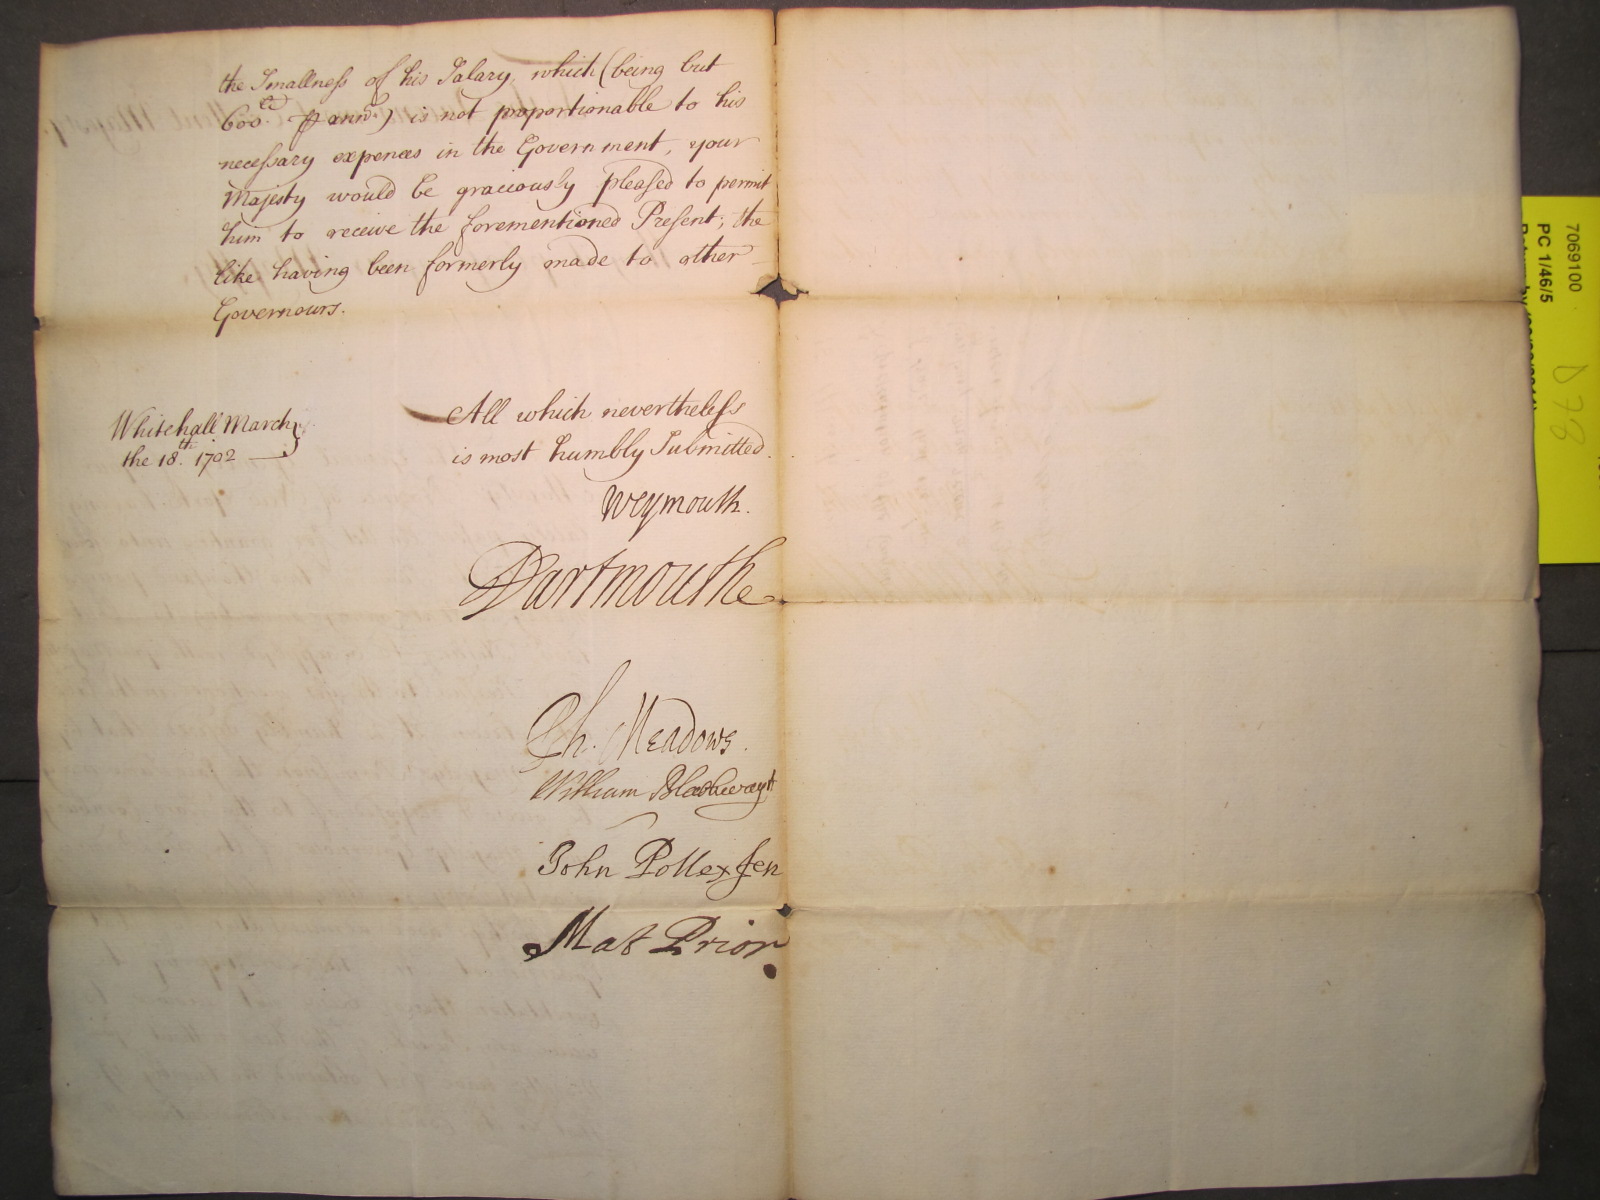 the Smallness of his Salary, which (being but
600.£ ⅌ ann.m) is not proportionable to his
necessary expences in the Government, your
Majesty would be graciously pleased to permit
him to receive the forementioned Present; the
like having been formerly made to other
Governours.
Whitehall March
the 18.th 1702
All which nevertheless
is most humbly Submitted.
Weymouth.
Dartmouthe
Ph. Meadows.
William Blathwayt
John Pollexfen
Mat Prior.
7069100
PC 1/46/5
D 78